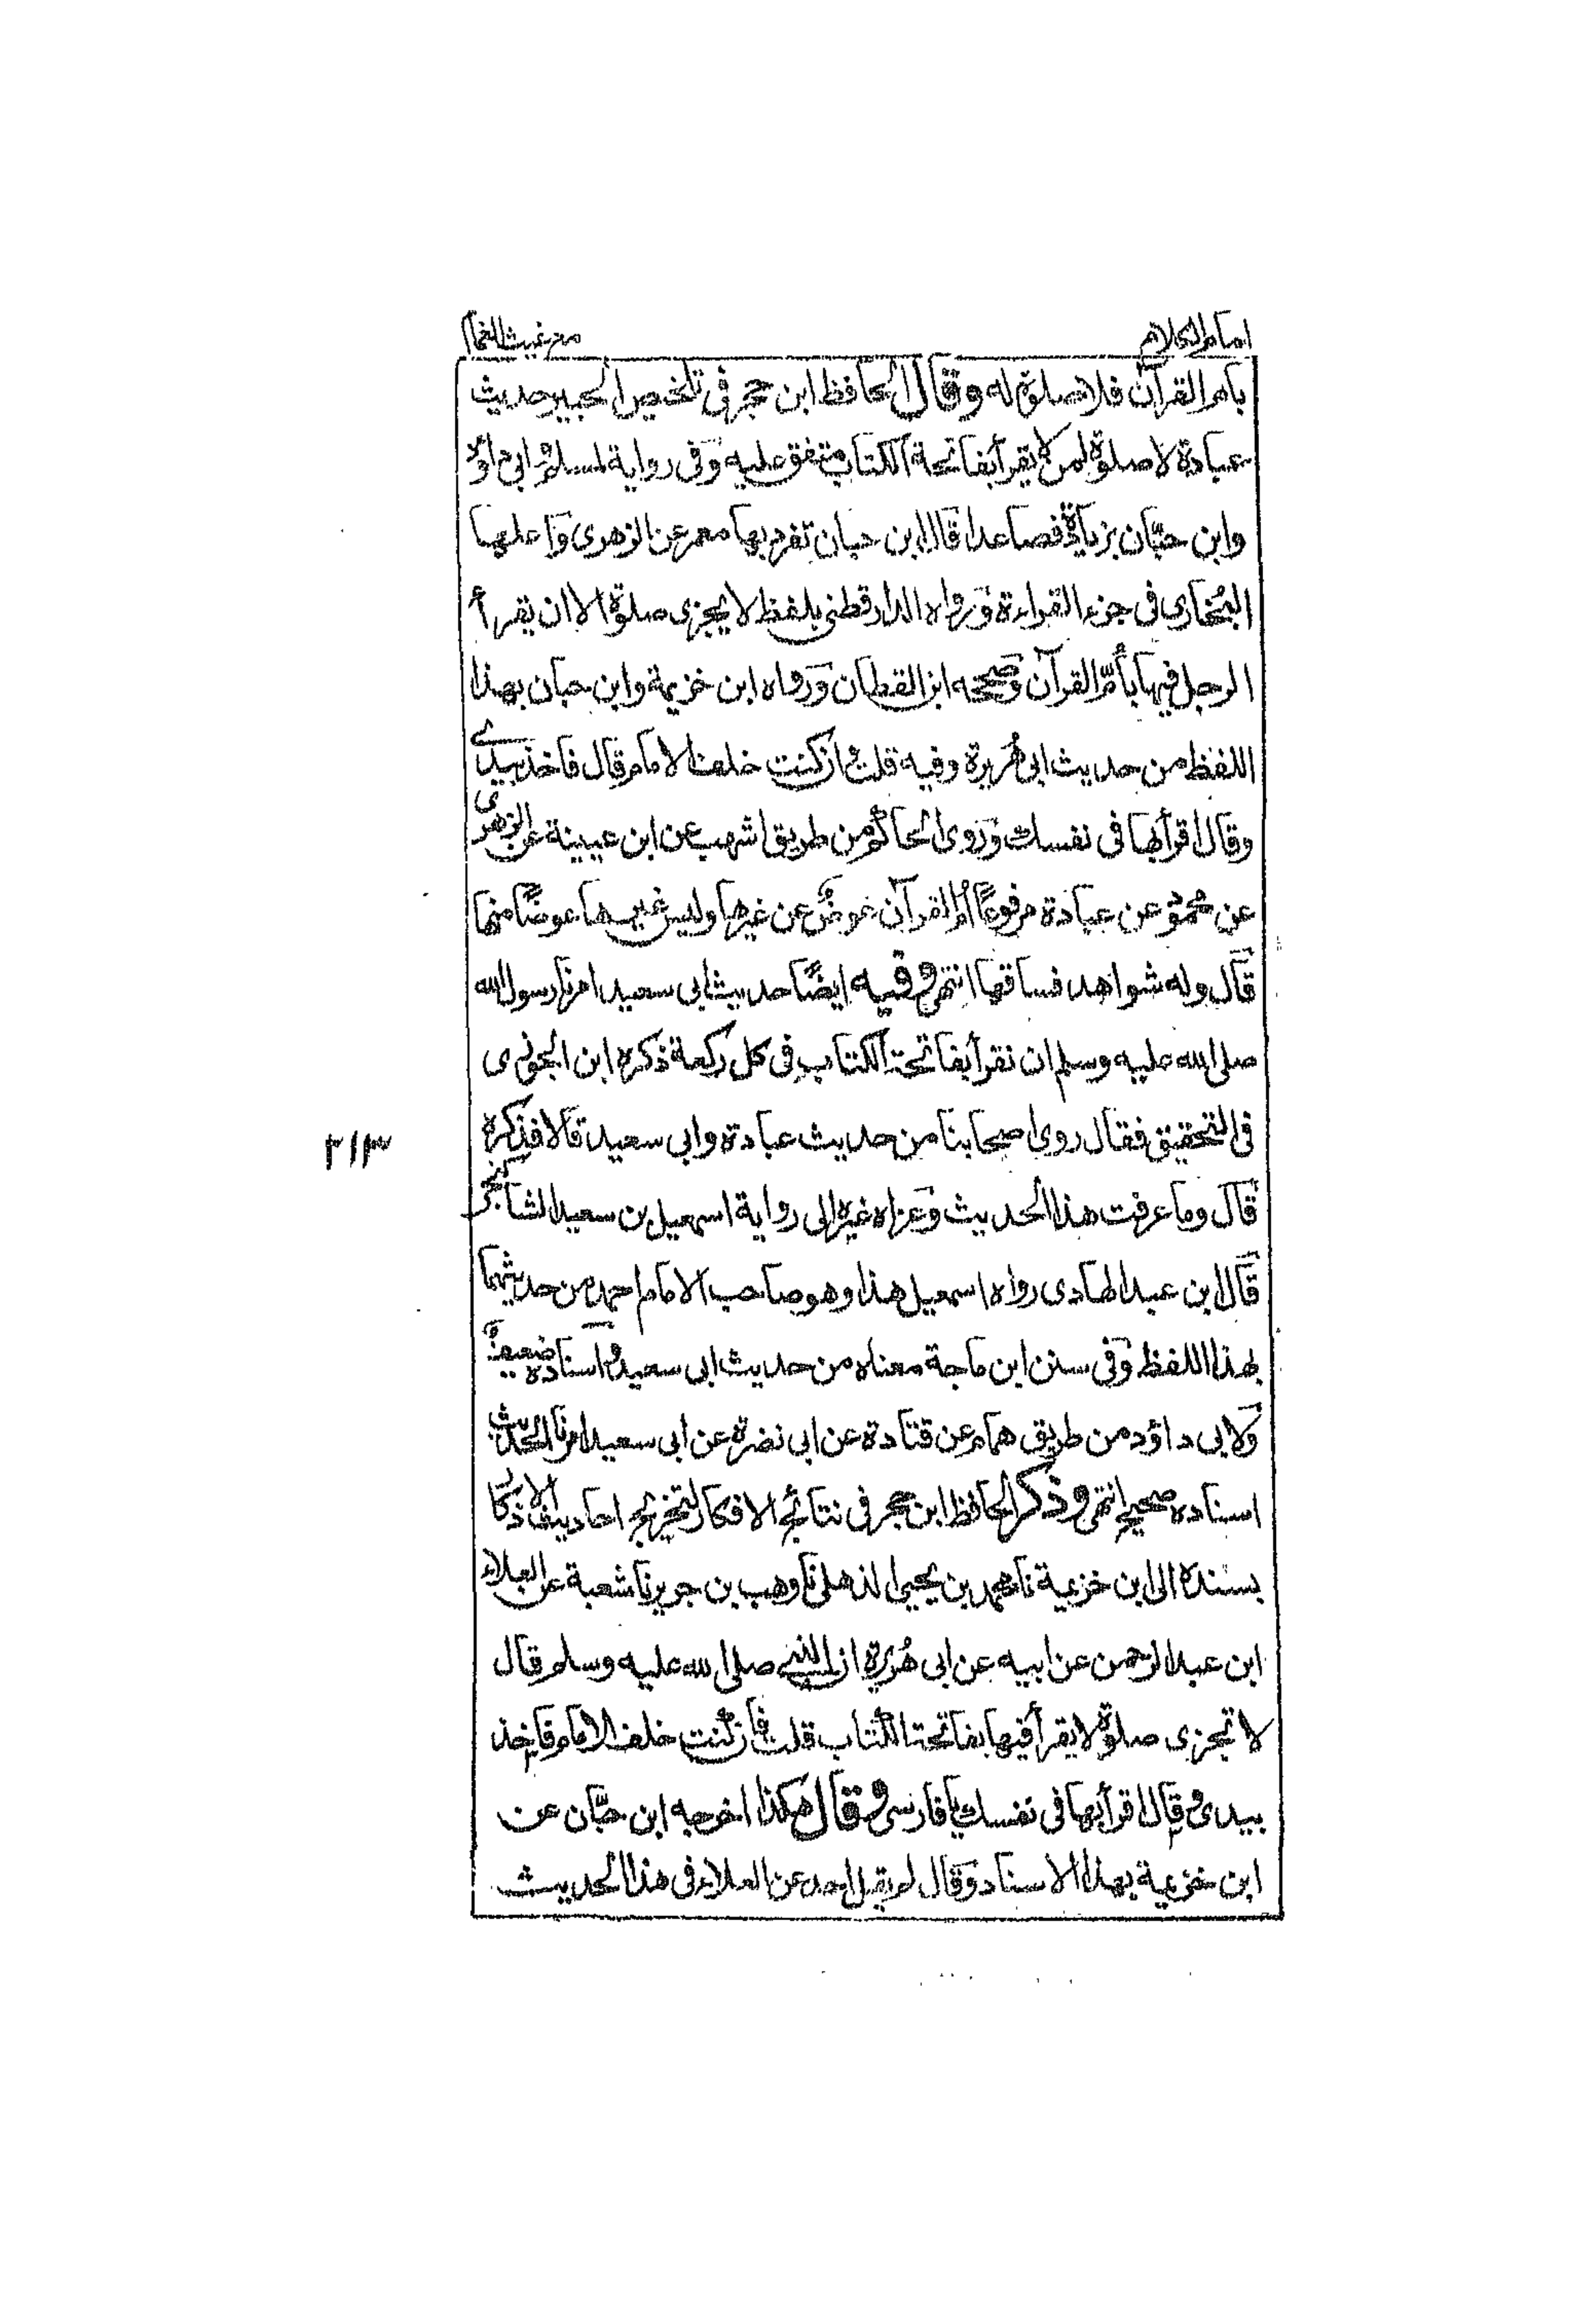 امام الكلام
مع غيث الغمام
بام القرآن فلا صلوة له وقال الحافظ ابن حجر في تلخيص الحبير حديث
عبادة لا صلوة لمن لا يقرأ بفاتحة الكتاب متفق عليه وفي رواية لمسلم وابي داؤد
وابن حبّان بزيادة فصاعدا قال ابن حبان تفرد بها معمر عن الزهرى واعلها
البُخارى في جزء القراءة ورواه الدارقطنى بلفظ لا يجزى صلوة الا ان يقرأ
الرجل فيها بأمّ القرآن وصححه ابن القطان ورواه ابن خزيمة وابن حبان بهذا
اللفظ من حديث ابى هُريرة وفيه قلت وان كنت خلف الامام قال فاخذ بيدى
وقال اقرأ بها في نفسك وروى الحاكم من طريق اشهب عن ابن عيينة عن الزهرى
عن محمود عن عبادة مرفوعًا أم القرآن عوضٌ عن غيرها وليس غيرها عوضًا منها
قال وله شواهد فساقها انتهى وفيه ايضًا حديث ابى سعيد امرنا رسول الله
صلى الله عليه وسلم ان نقرأ بفاتحة الكتاب في كل ركعة ذكره ابن الجوزى
في التحقيق فقال روى اصحابنا من حديث عبادة وابى سعيد قالا فذكره
قال وما عرفت هذا الحديث وعزاه غيره الى رواية اسمعيل بن سعيد الشالنجى
قال ابن عبد الهادى رواه اسمعيل هذا وهو صاحب الامام احمد من حديثهما
بهذا اللفظ وفي سنن ابن ماجة معناه من حديث ابى سعيد واسناده ضعيفٌ
ولابى داؤد من طريق همام عن قتادة عن ابى نضرة عن ابى سعيد امرنا الحديث
اسناده صحيح انتهى وذكر الحافظ ابن حجر في نتائج الافكار لتخريج احاديث الاذكار
بسنده الى ابن خزيمة نا محمد بن يحيى الذهلى نا وهب بن جرير نا شعبة عن العلاء
ابن عبد الرحمن عن ابيه عن ابى هُريرة ان النبى صلى الله عليه وسلم قال
لا تجزى صلوة لا يقرأ فيها بفاتحة الكتاب قلت فان كنت خلف الامام فاخذ
بيدى وقال اقرأ بها في نفسك يا فارسى وقال هكذا اخرجه ابن حبّان عن
ابن خزيمة بهذا الاسناد وقال لم يقل احد عن العلاء في هذا الحديث
٢١٣